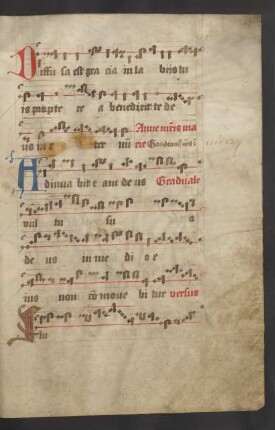 Diffu sa est gra cia in la biis tu
is propte re a benedixit te de
us in e ter nū Anne mr̄is ma
rie Gaudeamus
A diuua bit e am de us Graduale
vul tu su o
de us in me di o e
ius non cō moue bi tur versus
Flu